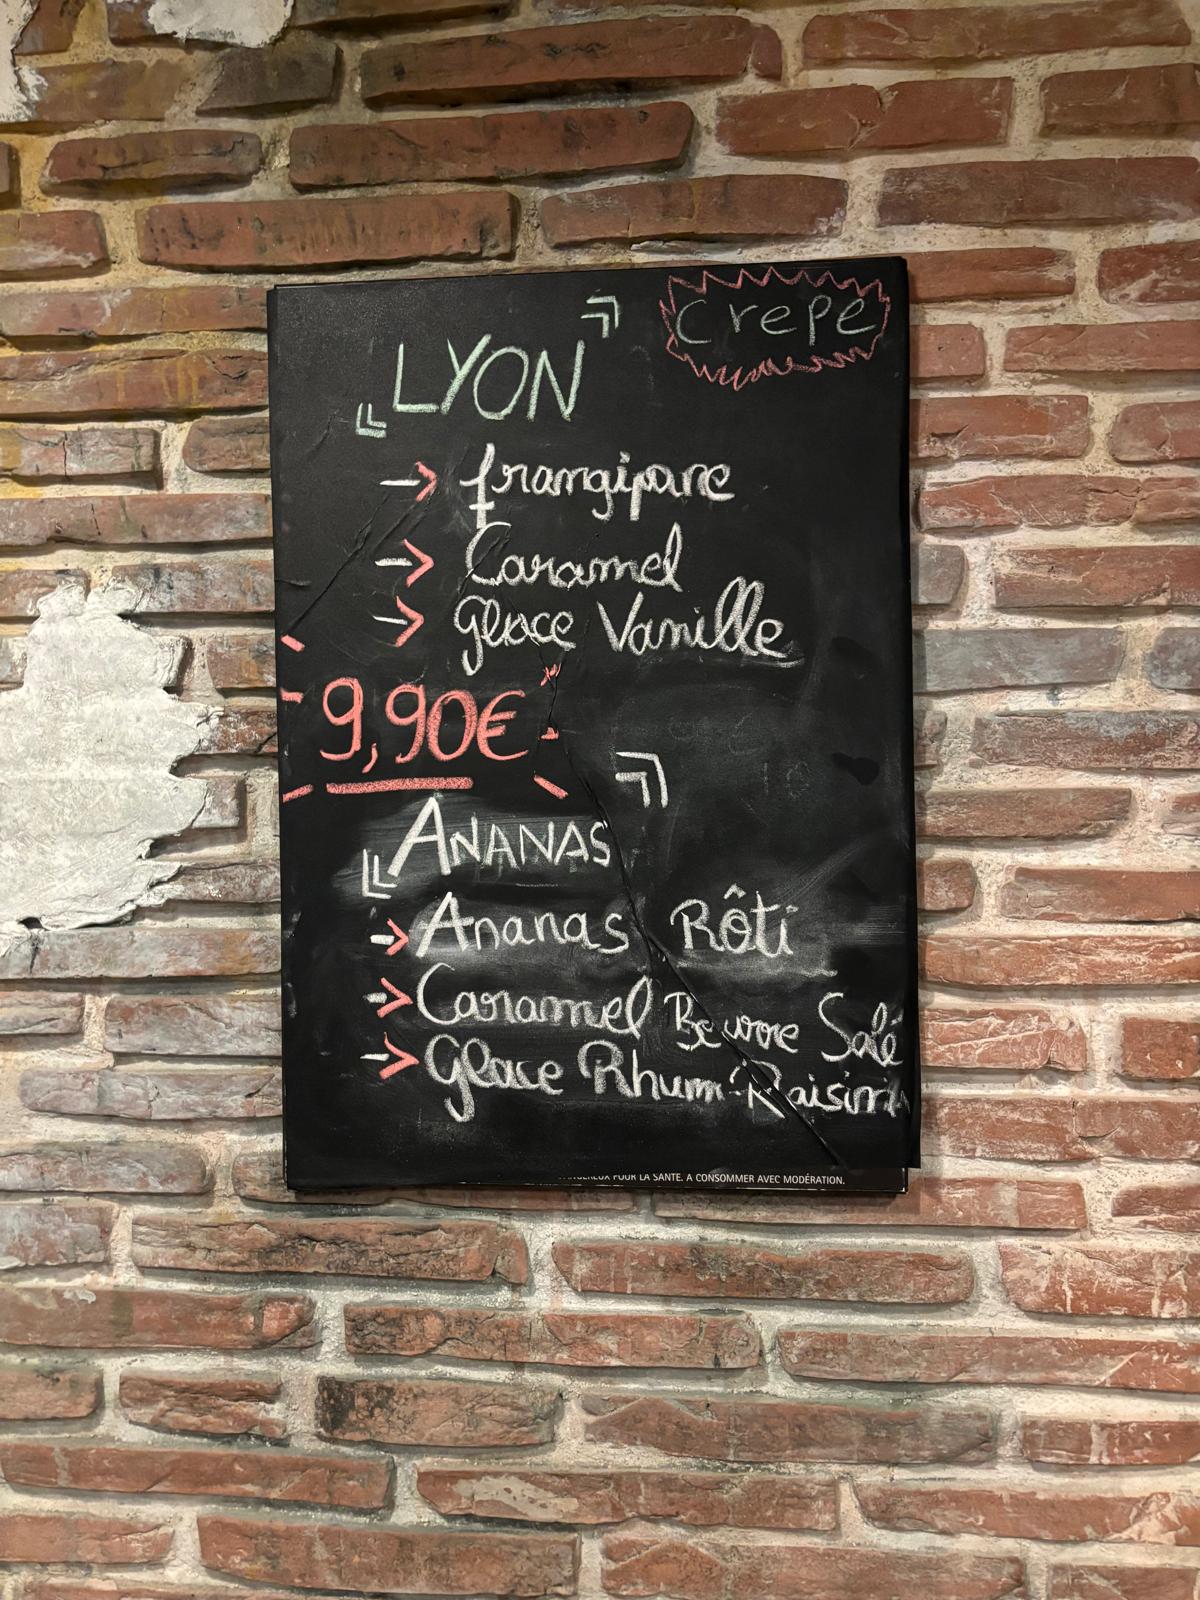 crepe
LYON
frangipane
Caramel
glace Vanille
9,90€
ANANAS
Ananas Rôti
Caramel Beurre Salé
Glace Rhum-Raisin
POUR LA SANTE. A CONSOMMER AVEC MODÉRATION.